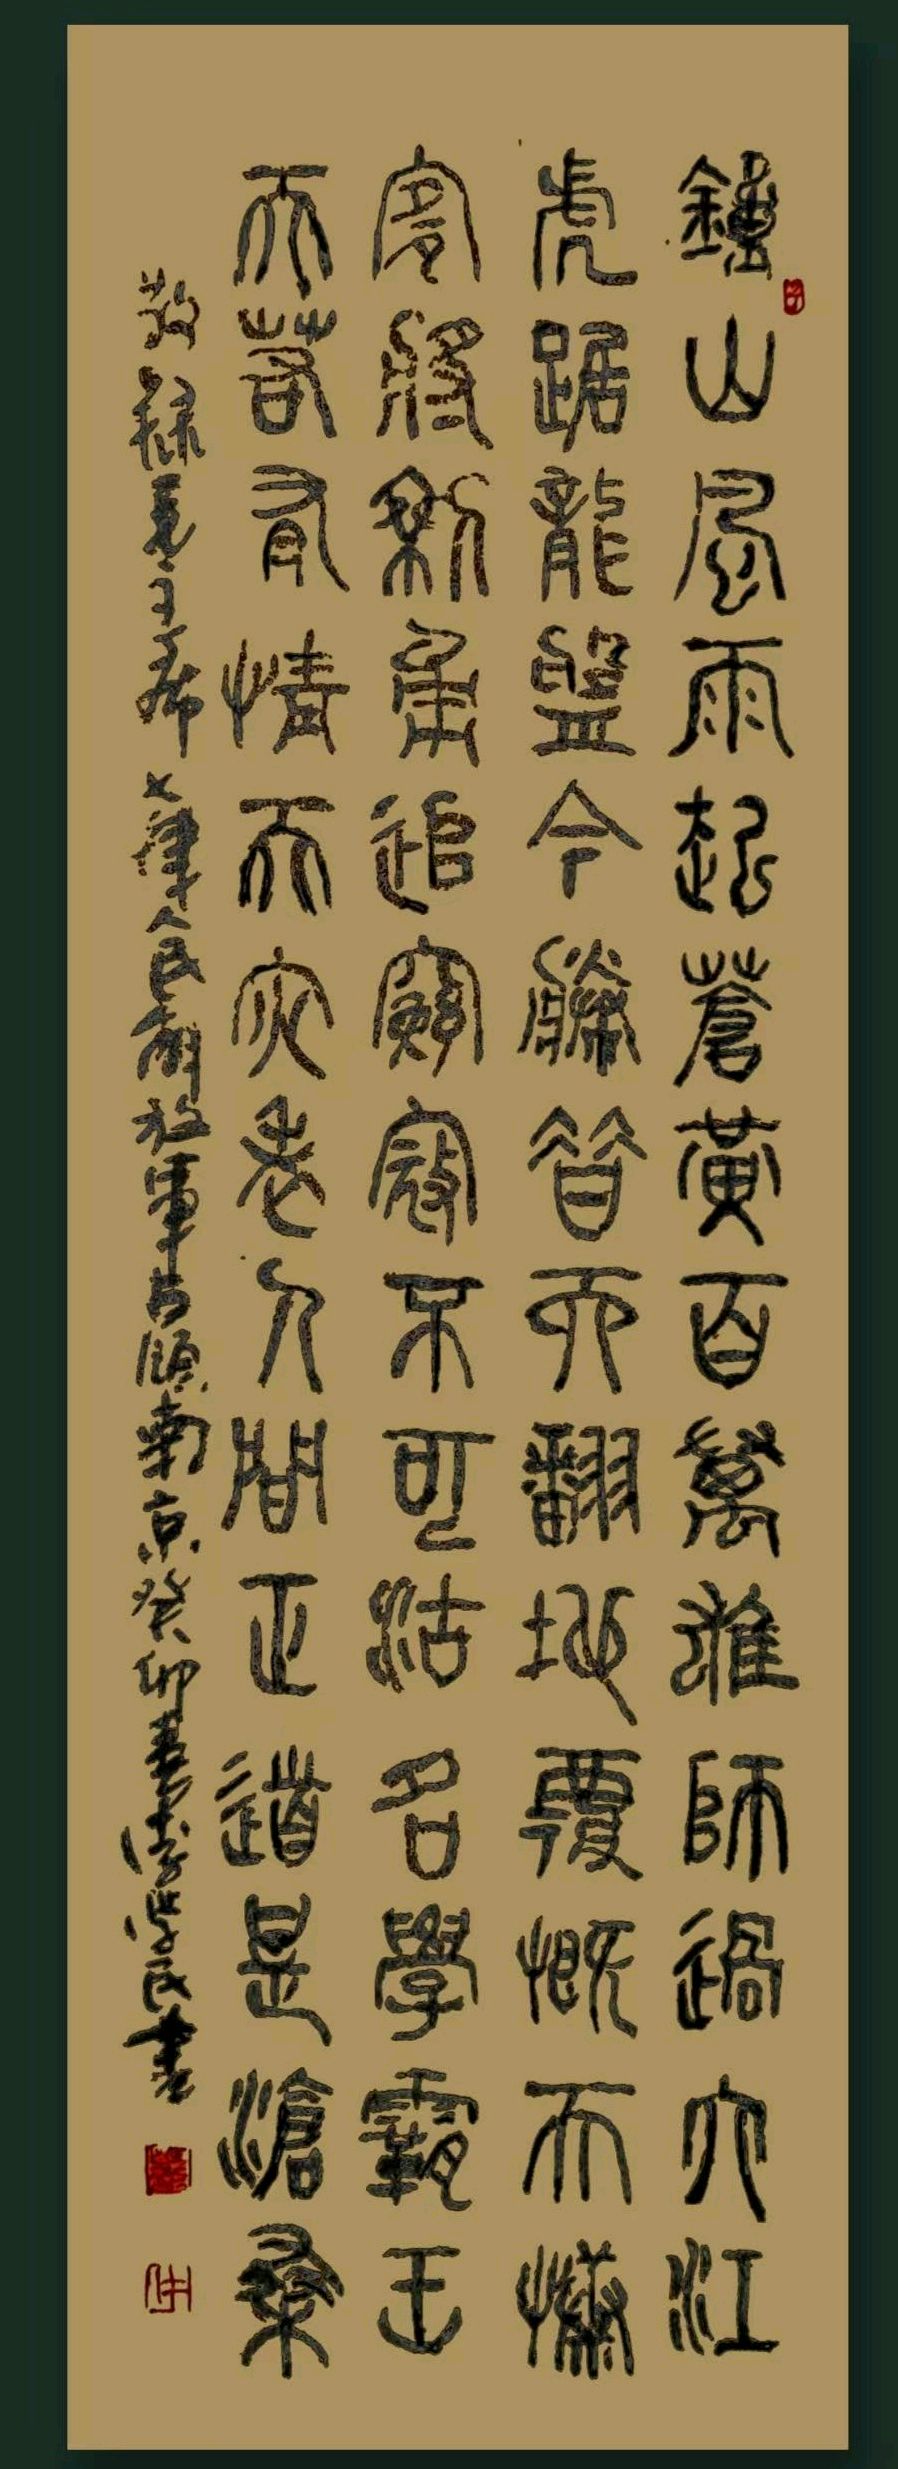 鐘山風雨起蒼黃百萬雄師過大江
虎踞龍盤今勝昔天翻地覆慨而慷
宜將剩勇追窮寇不可沽名學霸王
天若有情天亦老人間正道是滄桑
敬録毛主席七律人民解放軍占領南京癸卯學民書